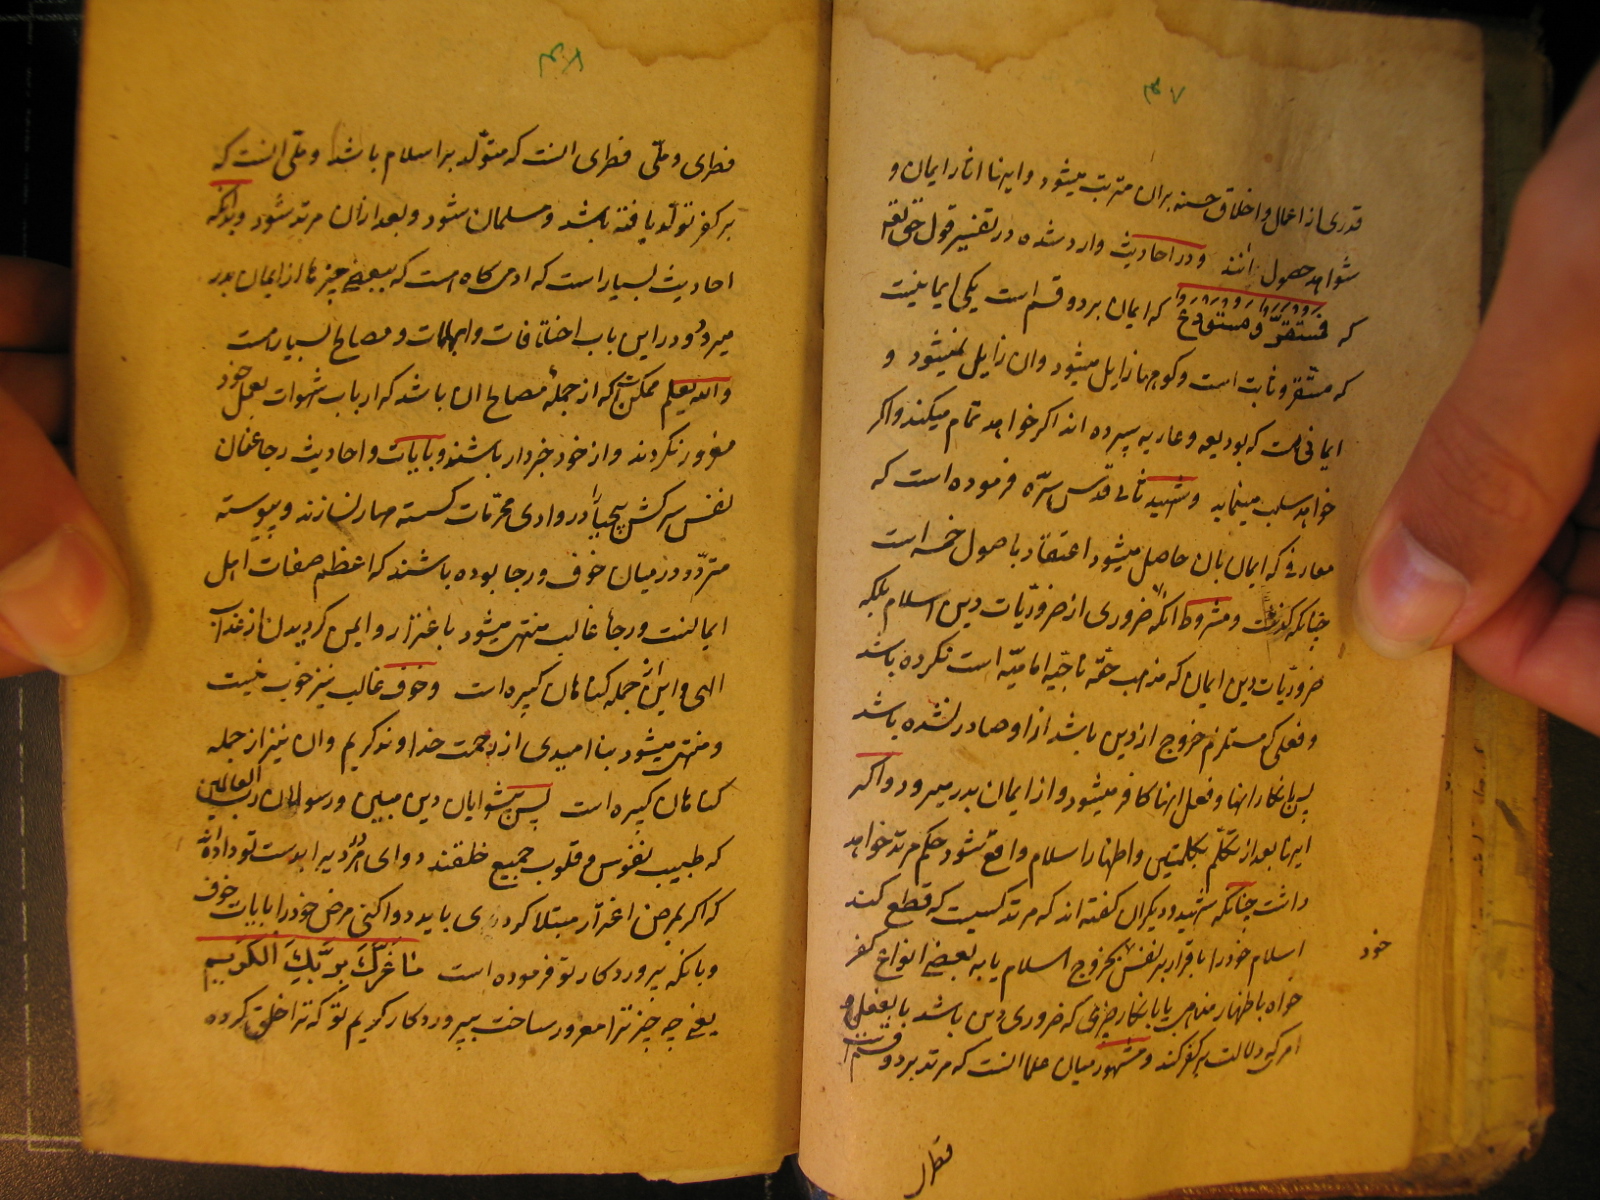 ۴۷
قدری از اعمال و اخلاق حسنه بران مترتب میشود و اینها اثار ایمان و
شواهد حصول انند و در احادیث وارد شده در تفسیر قول حق تعالی
که فمستقر و مستودع که ایمان بر دو قسم است یکی ایمانیست
که مستقر و ثابت است و کوهها زایل میشود و ان زایل نمیشود و
ایمانی است که بودیعه و عاریه سپرده اند اکر خواهد تمام میکند و اکر
خواهد سلب مینماید و شهید ثانی قدس سره فرموده است که
معارفی که ایمان بان حاصل میشود اعتقاد باصول خمسه است
چنانکه کذشت و مشروط بانکه ضروری از ضروریات دین اسلام بلکه
ضروریات دین ایمان که مذهب حقه ناجیه امامیه است نکرده باشد
و فعلی که مستلزم خروج از دین باشد از او صادر نشده باشد
پس بانکار انها و فعل انها کافر میشود و از ایمان بدر میرود و اکر
اینها بعد از تکلم بکلمتین و اظهار اسلام واقع شود حکم مرتد خواهد
داشت چنانکه شهید و دیکران کفته اند که مرتد کسیست که قطع کند
اسلام خود را باقرار بر نفس خود بخروج از اسلام یا به بعضی انواع کفر
خواه باظهار مذاهب یا بانکار چیزی که ضروری دین باشد یا بفعلی
امر که دلالت بر کفر کند و مشهور میان علما انست که مرتد بر دو قسمست
فطری
۴۸
فطری و ملی فطری انست که متولد بر اسلام باشد و ملی انست که
بر کفر تولد یافته باشد و مسلمان شود و بعد از ان مرتد شود و بدانکه
احادیث بسیار است که ادمی کاه است که ببعضی چیزها از ایمان بدر
میرود و در این باب اختلافات و ابهامات و مصالح بسیار هست
و الله یعلم ممکن است که از جمله مصالح ان باشد که ارباب شهوات بعمل خود
مغرور نکردند و از خود خبردار باشند و بایات و احادیث رجا عنان
نفس سرکش بیحیا را در وادی محرمات کسسته مهار نسازند و پیوسته
متردد در میان خوف و رجا بوده باشند که اعظم صفات اهل
ایمانست و رجاء غالب منتهی میشود باغترار و ایمن کردیدن از عذاب
الهی و این از جمله کناهان کبیره است و خوف غالب نیز خوب نیست
و منتهی میشود بنا امیدی از رحمت خداوند کریم و ان نیز از جمله
کناهان کبیره است پس پیشوایان دین مبین و رسولان رب العالمین
که طبیب نفوس و قلوب جمیع خلقند دوای هر درد را بدست تو داده اند
که اکر بمرض اغترار مبتلا کردی باید دوا کنی مرض خود را بایات خوف
و بانکه پروردکار تو فرموده است ما غرک بربک الکریم
یعنی چه چیز ترا مغرور ساخت بپروردکار کریم تو که ترا خلق کرده